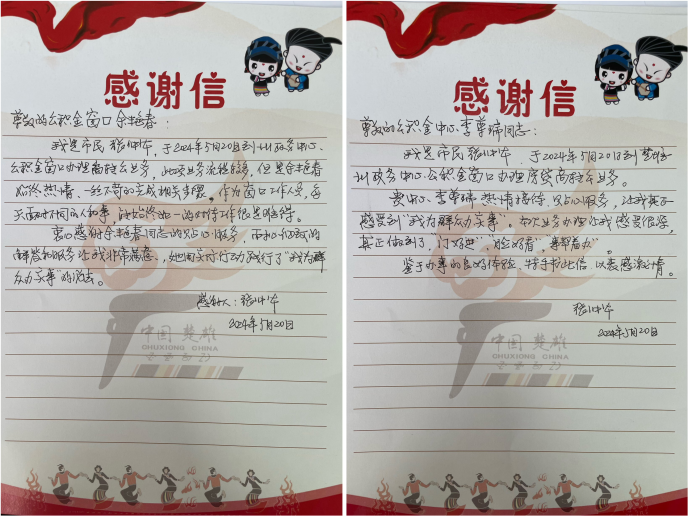 感谢信
尊敬的公积金窗口余艳春:
我是市民张 ,于2024年5月20日到州政务中心
公积金窗口办理商转公业务,此项业务流程 ,但是余艳春
始终热情、一丝不苟的完成相关手续。作为窗口工作人员,每
天面对不同的人和事,她始终如一的对待工作很是难得。
衷心感谢余艳春同志的贴心服务,
解答和服务让我非常满意,她用实际行动践行了“我为群
众办实事”的 。
感谢人:张
2024年5月20日
中国 楚雄
CHUXIONG CHINA
感谢信
尊敬的公积金中心李 同志:
我是市民张 ,于2024年5月20日到楚雄
州政务中心公积金窗口办理房贷商转公业务。
贵中心李 热情接待、贴心服务,让我真正
感受到“我为群众办实事”,本次业务办理让我感受很深,
真正做到了“门好进”、“脸好看”、“事好办”。
鉴于办事的良好体验,特手书此信,以表感激之情。
张
2024年5月20日
中国 楚雄
CHUXIONG CHINA